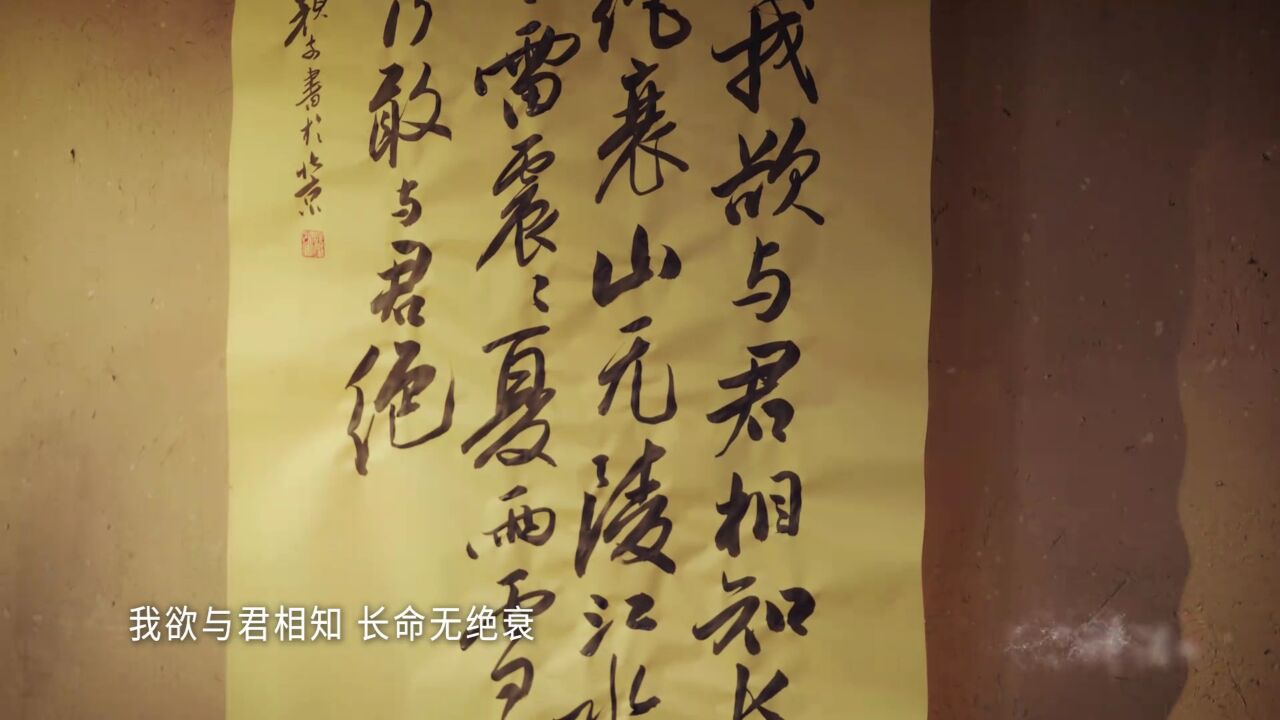 我欲与君相知长
绝衰山无陵江水
雷震〻夏雨雪
敢与君绝
书于北京
我欲与君相知 长命无绝衰